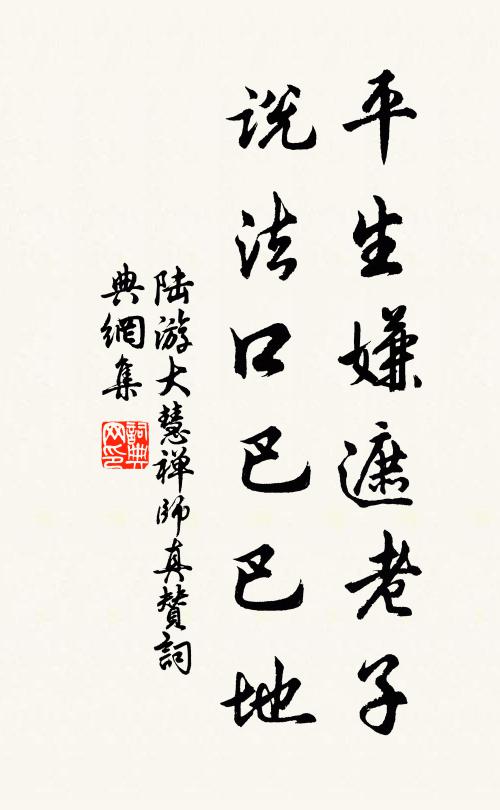 平生嫌遮老子
说法口巴巴地
陆游大慧禅師真赞詞
典網集
詞典
网印